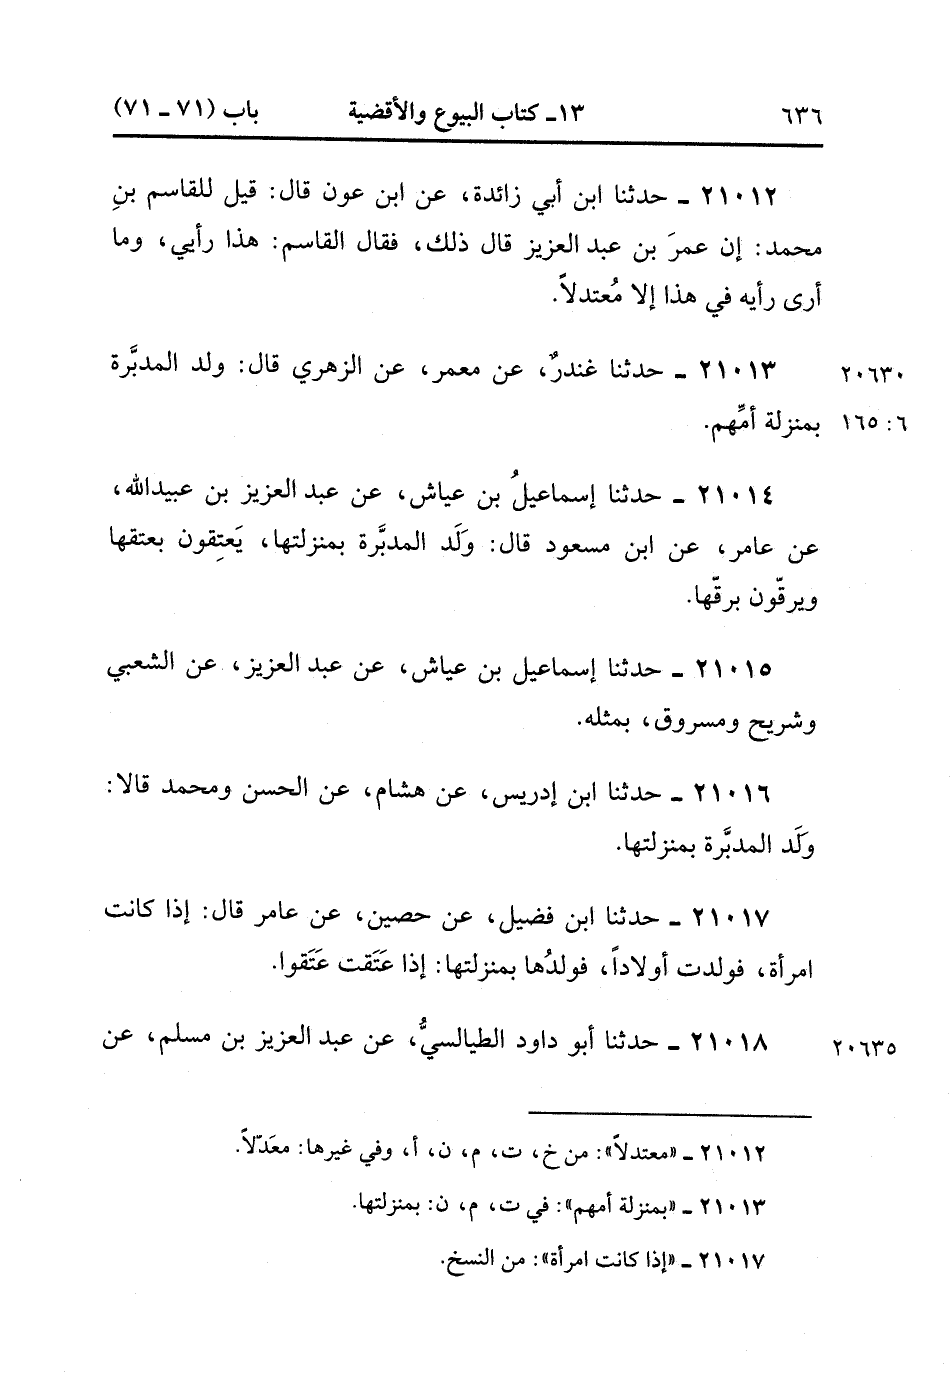 ٦٣٦ ١٣ـ كتاب البيوع والأقضية باب (٧١ ـ ٧١)
٢١٠١٢ ـ حدثنا ابن أبي زائدة، عن ابن عون قال: قيل للقاسم بنِ
محمد: إن عمرَ بن عبد العزيز قال ذلك، فقال القاسم: هذا رأيي، وما
أرى رأيه في هذا إلا مُعتدلاً.
٢٠٦٣٠ ٢١٠١٣ ـ حدثنا غندرٌ، عن معمر، عن الزهري قال: ولد المدبَّرة
٦: ١٦٥ بمنزلة أمِّهم.
٢١٠١٤ ـ حدثنا إسماعيلُ بن عياش، عن عبد العزيز بن عبيدالله،
عن عامر، عن ابن مسعود قال: ولَد المدبَّرة بمنزلتها، يَعتِقون بعتقها
ويرقّون برقّها.
٢١٠١٥ ـ حدثنا إسماعيل بن عياش، عن عبد العزيز، عن الشعبي
وشريح ومسروق، بمثله.
٢١٠١٦ ـ حدثنا ابن إدريس، عن هشام، عن الحسن ومحمد قالا:
ولَد المدبَّرة بمنزلتها.
٢١٠١٧ ـ حدثنا ابن فضيل، عن حصين، عن عامر قال: إذا كانت
امرأة، فولدت أولاداً، فولدُها بمنزلتها: إذا عَتَقت عَتَقوا.
٢٠٦٣٥ ٢١٠١٨ ـ حدثنا أبو داود الطيالسيُّ، عن عبد العزيز بن مسلم، عن
٢١٠١٢ ـ «معتدلاً»: من خ، ت، م، ن، أ، وفي غيرها: معَدّلاً.
٢١٠١٣ ـ «بمنزلة أمهم»: في ت، م، ن: بمنزلتها.
٢١٠١٧ ـ «إذا كانت امرأة»: من النسخ.